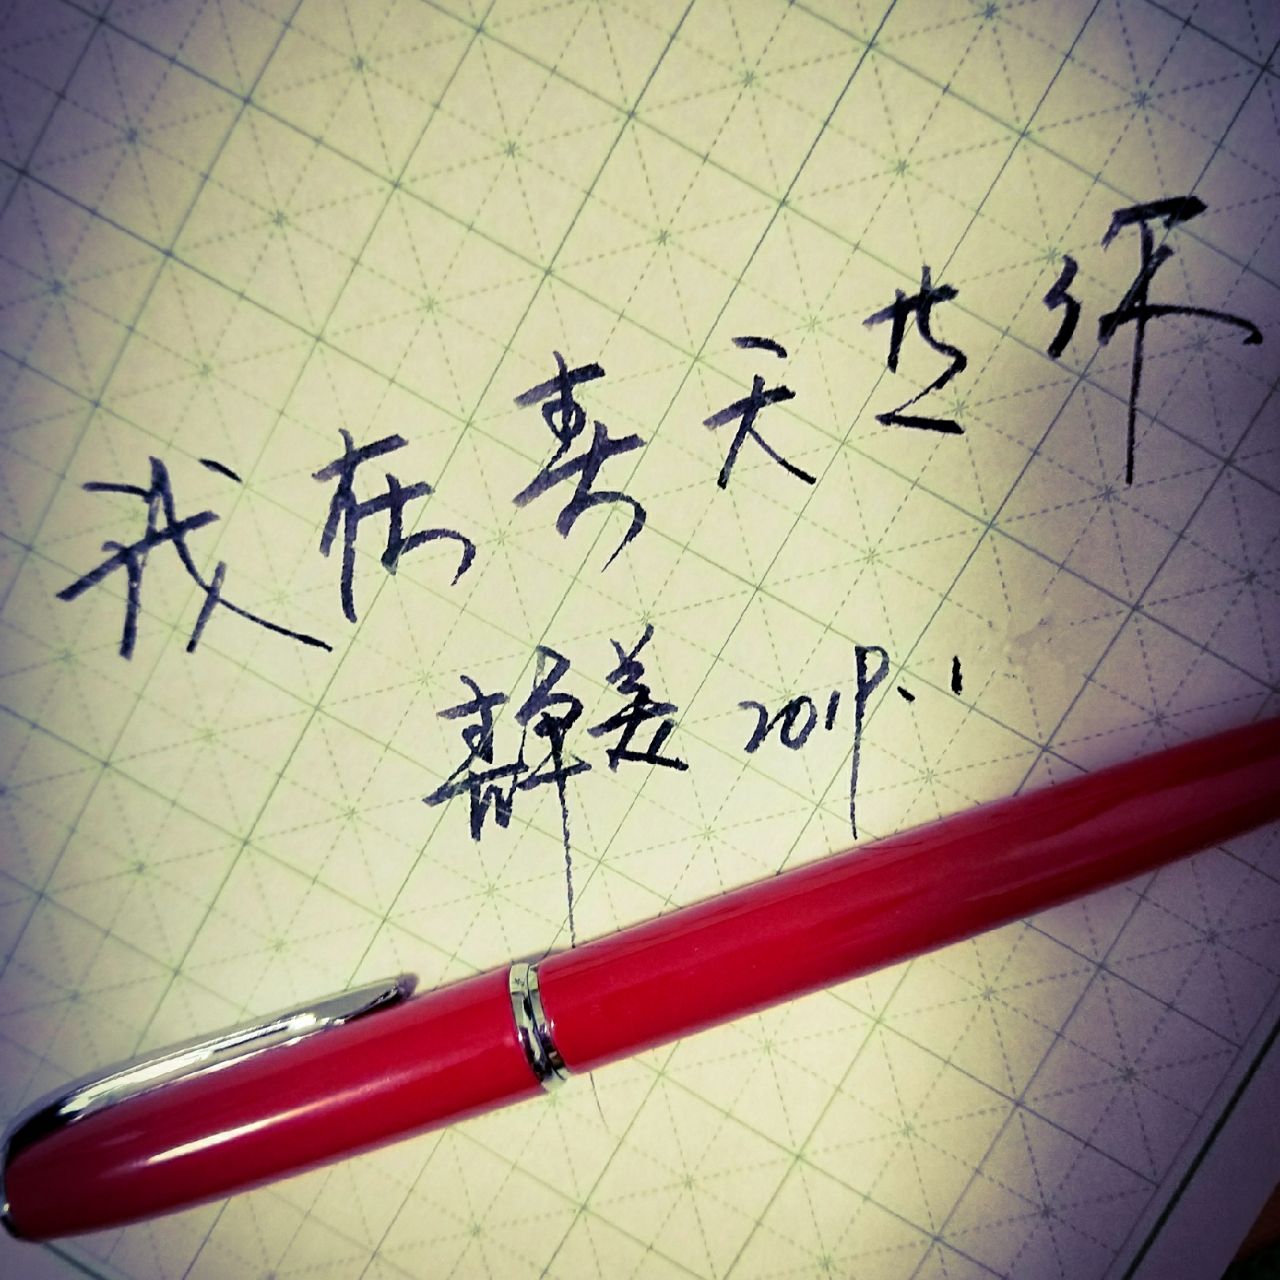 我在春天等你
静美 2019.1